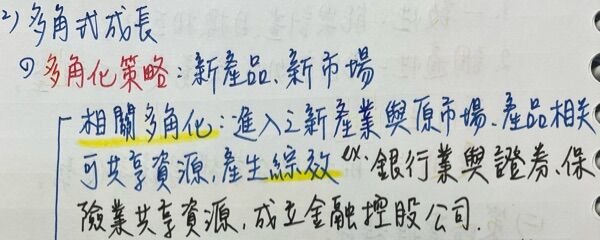 2) 多角式成長
① 多角化策略：新產品、新市場
相關多角化：進入之新產業與原市場、產品相关
可共享資源，產生綜效 ex: 銀行業與證券、保
險業共享資源，成立金融控股公司.